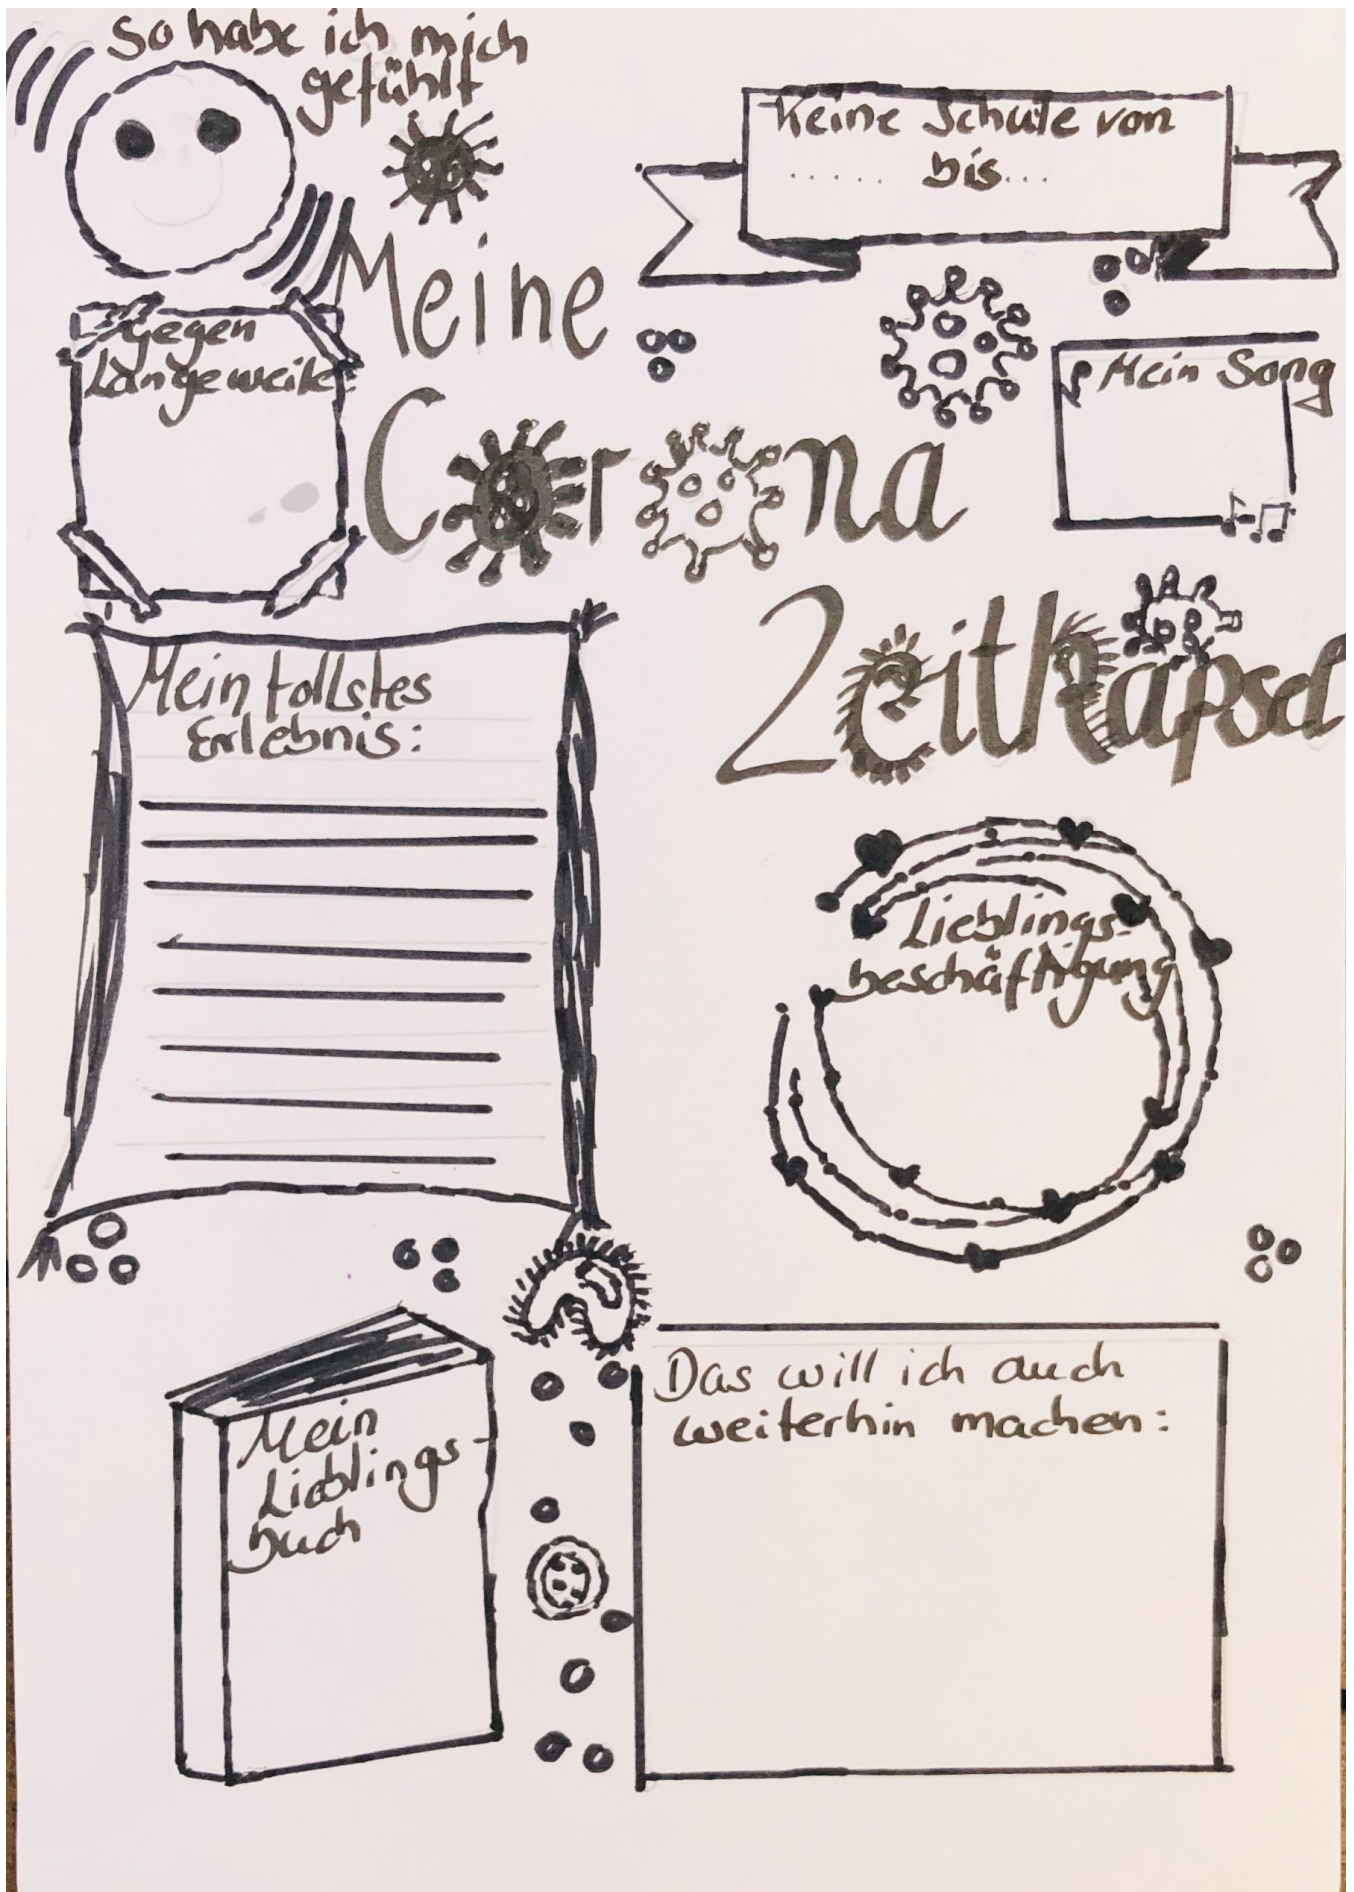 So habe ich mich
gefühlt
Keine Schule von
...... bis...
Meine
Corona
Zeitkapsel
Gegen
Langeweile:
Mein Song
Mein tollstes
Erlebnis:
Lieblings-
beschäftigung
Mein
Lieblings-
buch
Das will ich auch
weiterhin machen: